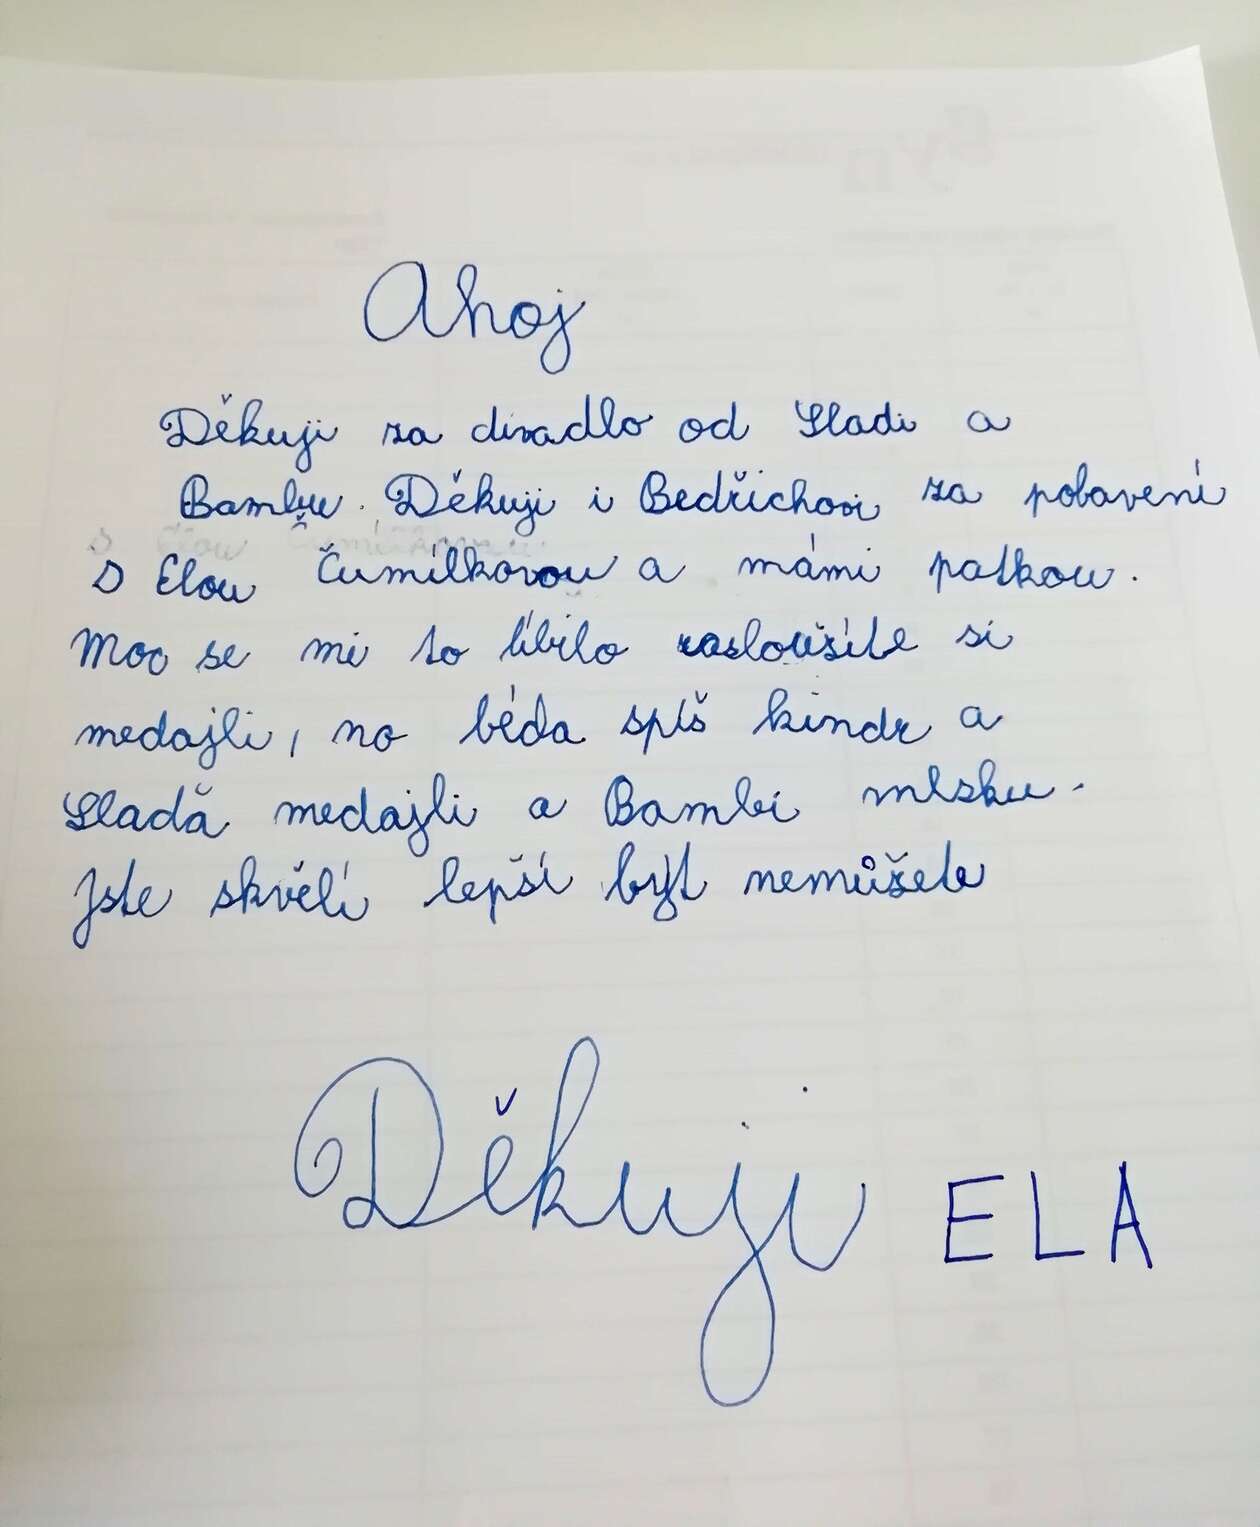 Ahoj
Děkuji za divadlo od Sladi a
Bambu. Děkuji i Bedřichovi za pobavení
s Elou Čumílkovou a mámi patkou.
Moc se mi to líbilo zasloužíte si
medajli, no béďa spíš kindr a
Slaďa medajli a Bambi mlsku.
Jste skvělí lepší být nemůžete
Děkuji ELA